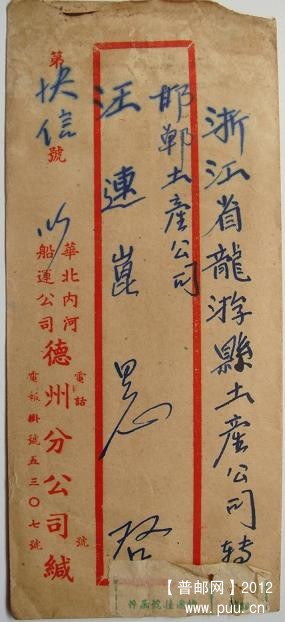 浙江省龍游縣土產公司轉
邯鄲土產公司
汪連崑 啓
第 號
快信
華北内河
船運公司
德州分公司緘
電話 號
電報掛號五三〇七號
【普邮网】2012
www.puu.cn